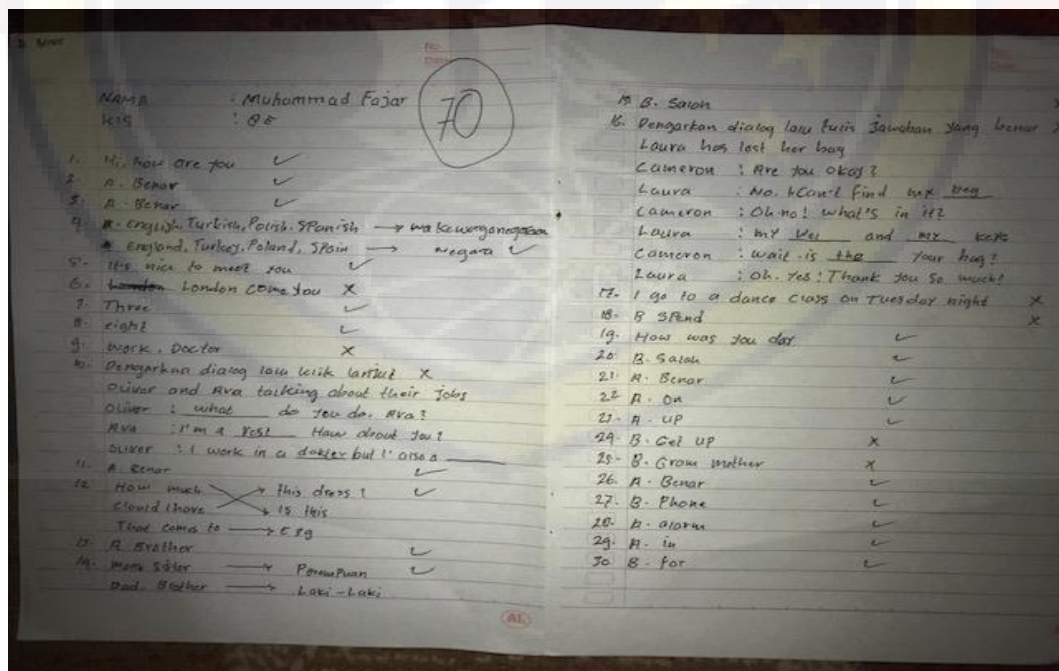 No
NAMA : Muhammad Fajar
70
1. Hi, how are you ✓
2. A. Benar ✓
3. A. Benar ✓
4. English, Turkish, Polish, Spanish → wakewarganegaraan
England, Turkey, Poland, Spain → negara ✓
5. It's nice to meet you ✓
6. London come you ×
7. Three ✓
8. eight ✓
9. Work, Doctor ×
10. Dengarkan dialog lalu klik lanjut ×
Oliver and Ava talking about their jobs
Oliver : what do you do, Ava?
Ava : I'm a How about you?
Oliver : I work in a dokter but I' also a
11. A. Benar ✓
12. How much → this dress? ✓
Could I have → is this
That comes to → £ 59
13. A Brother ✓
14. Mom, Sister → Perempuan ✓
Dad, Brother → Laki-Laki
AL
15. B. Salah
16. Dengarkan dialog lalu tulis Jawaban yang benar
Laura has lost her bag
Cameron : Are you okay?
Laura : No. I Can't find my bag
Cameron : Oh no! what's in it?
Laura : my and my keys
Cameron : wait - is the your bag?
Laura : Oh. Yes! Thank you so much!
17. I go to a dance class on Tuesday night ×
18. B Spend ×
19. How was you day ✓
20. B. Salah ✓
21. A. Benar ✓
22 A. On ✓
23. A. UP ✓
24. B. Get UP ×
25. B. Gram mother ×
26. A. Benar ✓
27. B. Phone ✓
28. A. alarm ✓
29. A. in ✓
30 B. for ✓